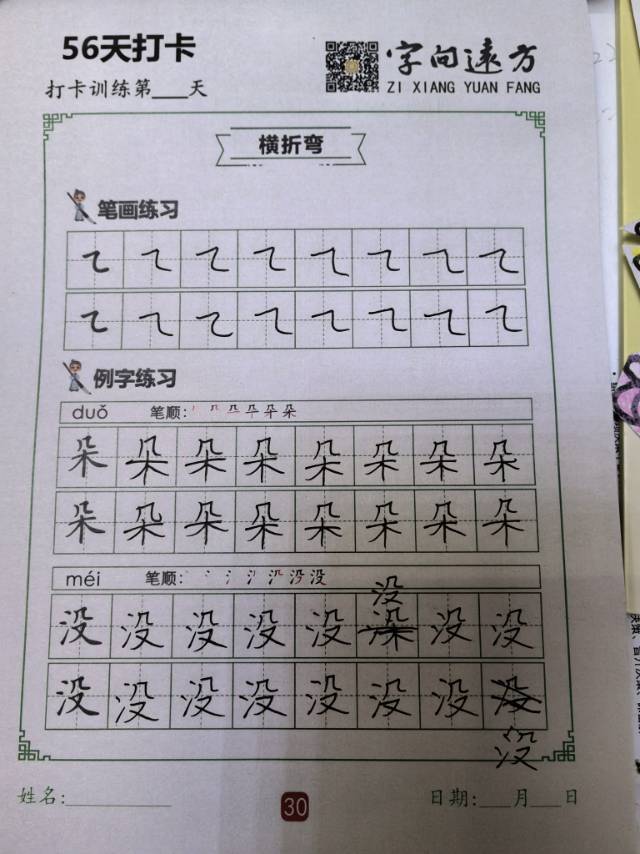 56天打卡
字向远方
打卡训练第___天
ZI XIANG YUAN FANG
横折弯
笔画练习
例字练习
duǒ 笔顺:
朵 朵 朵 朵 朵 朵 朵 朵
朵 朵 朵 朵 朵 朵 朵 朵
méi 笔顺:
没
没 没 没 没 没 没 没
没 没 没 没 没 没 没 没
没
姓名:
30
日期:___月___日